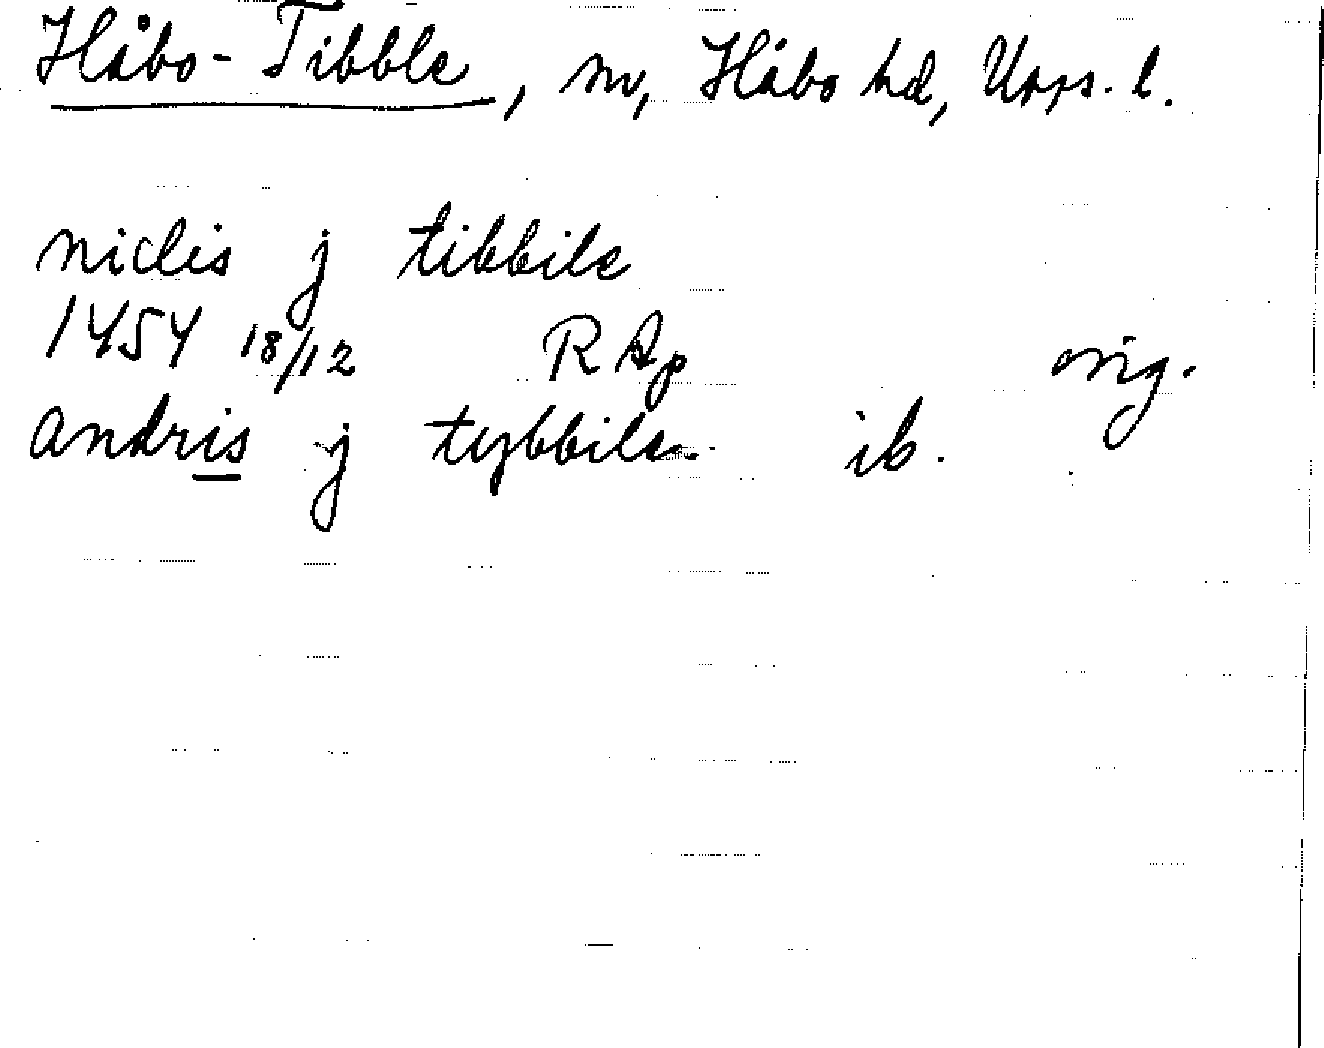 Håbo-Tibble, sn, Håbo hd, Upps. l.
niclis j tibbile
1454 18/12 RAp orig.
andris j tybbile ib.